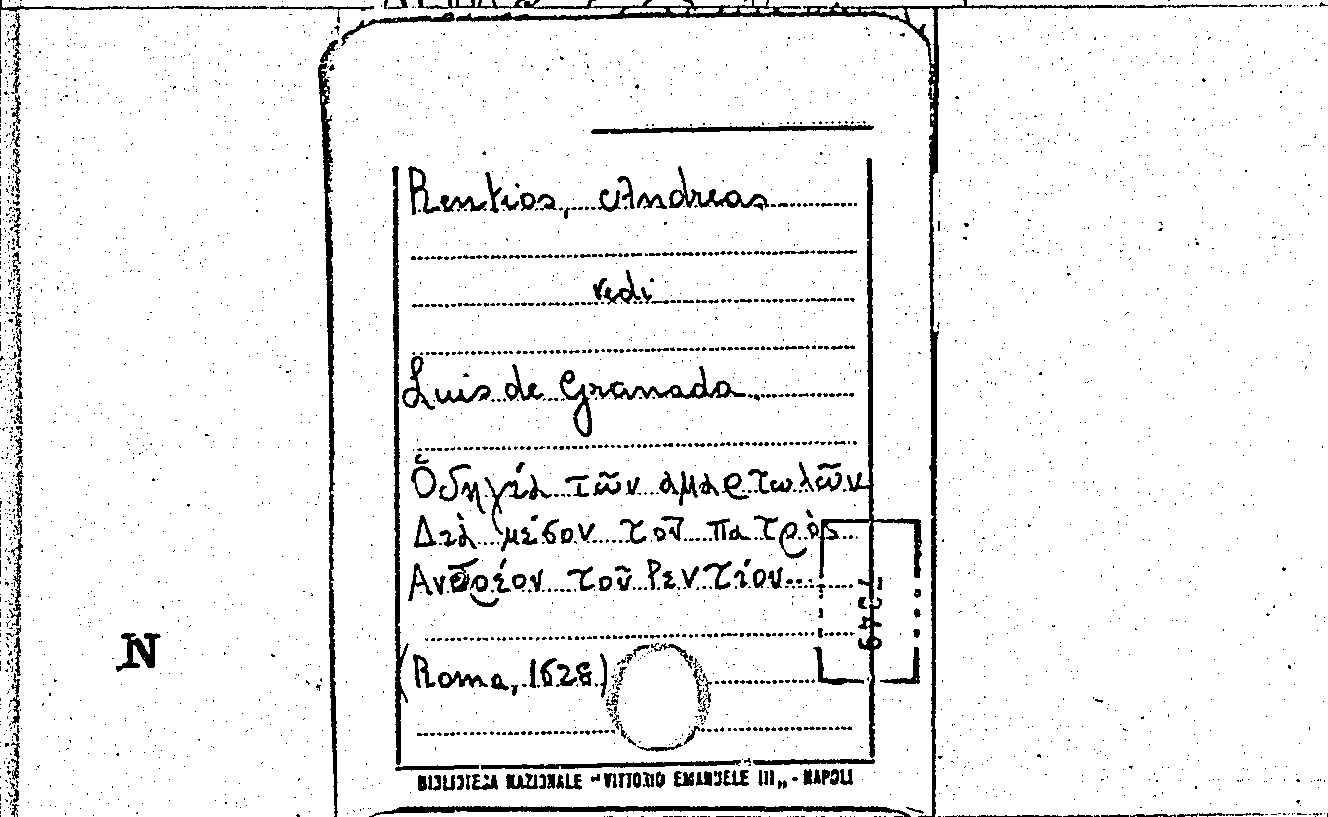 Rentios, Andreas
vedi
Luis de Granada.
Ὁδηγία τῶν ἁμαρτωλῶν
Διὰ μέσον τοῦ πατρὸς
Ανδρέου τοῦ Ρεντίου
7349
N
(Roma, 1628)
BIBLIOTECA NAZIONALE "VITTORIO EMANUELE III„ - NAPOLI